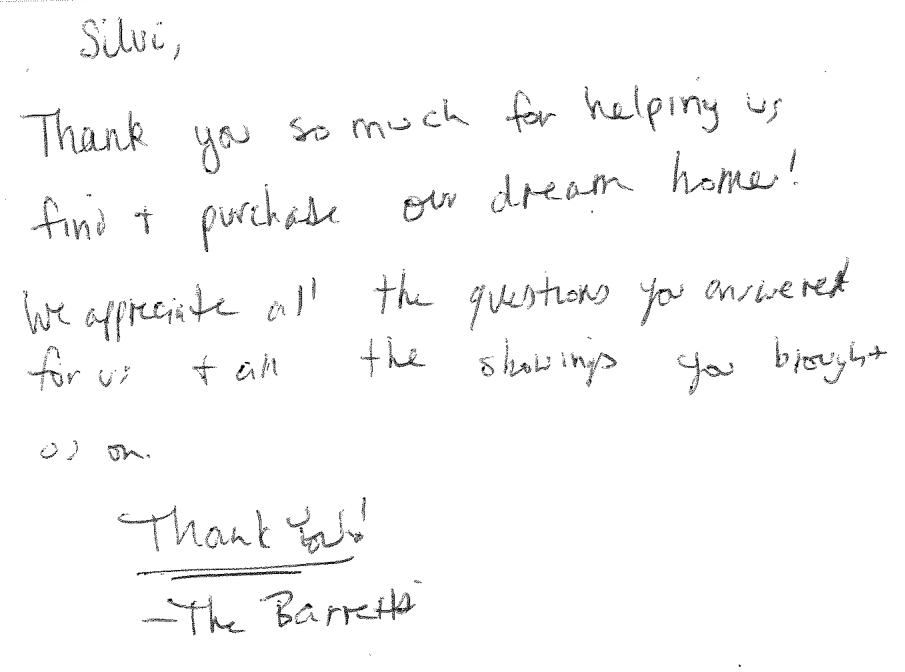 Silvi,
Thank you so much for helping us
find + purchase our dream home!
We appreciate all the questions you answered
for us + all the showings you brought
us on.
Thank You!
- The Barretts